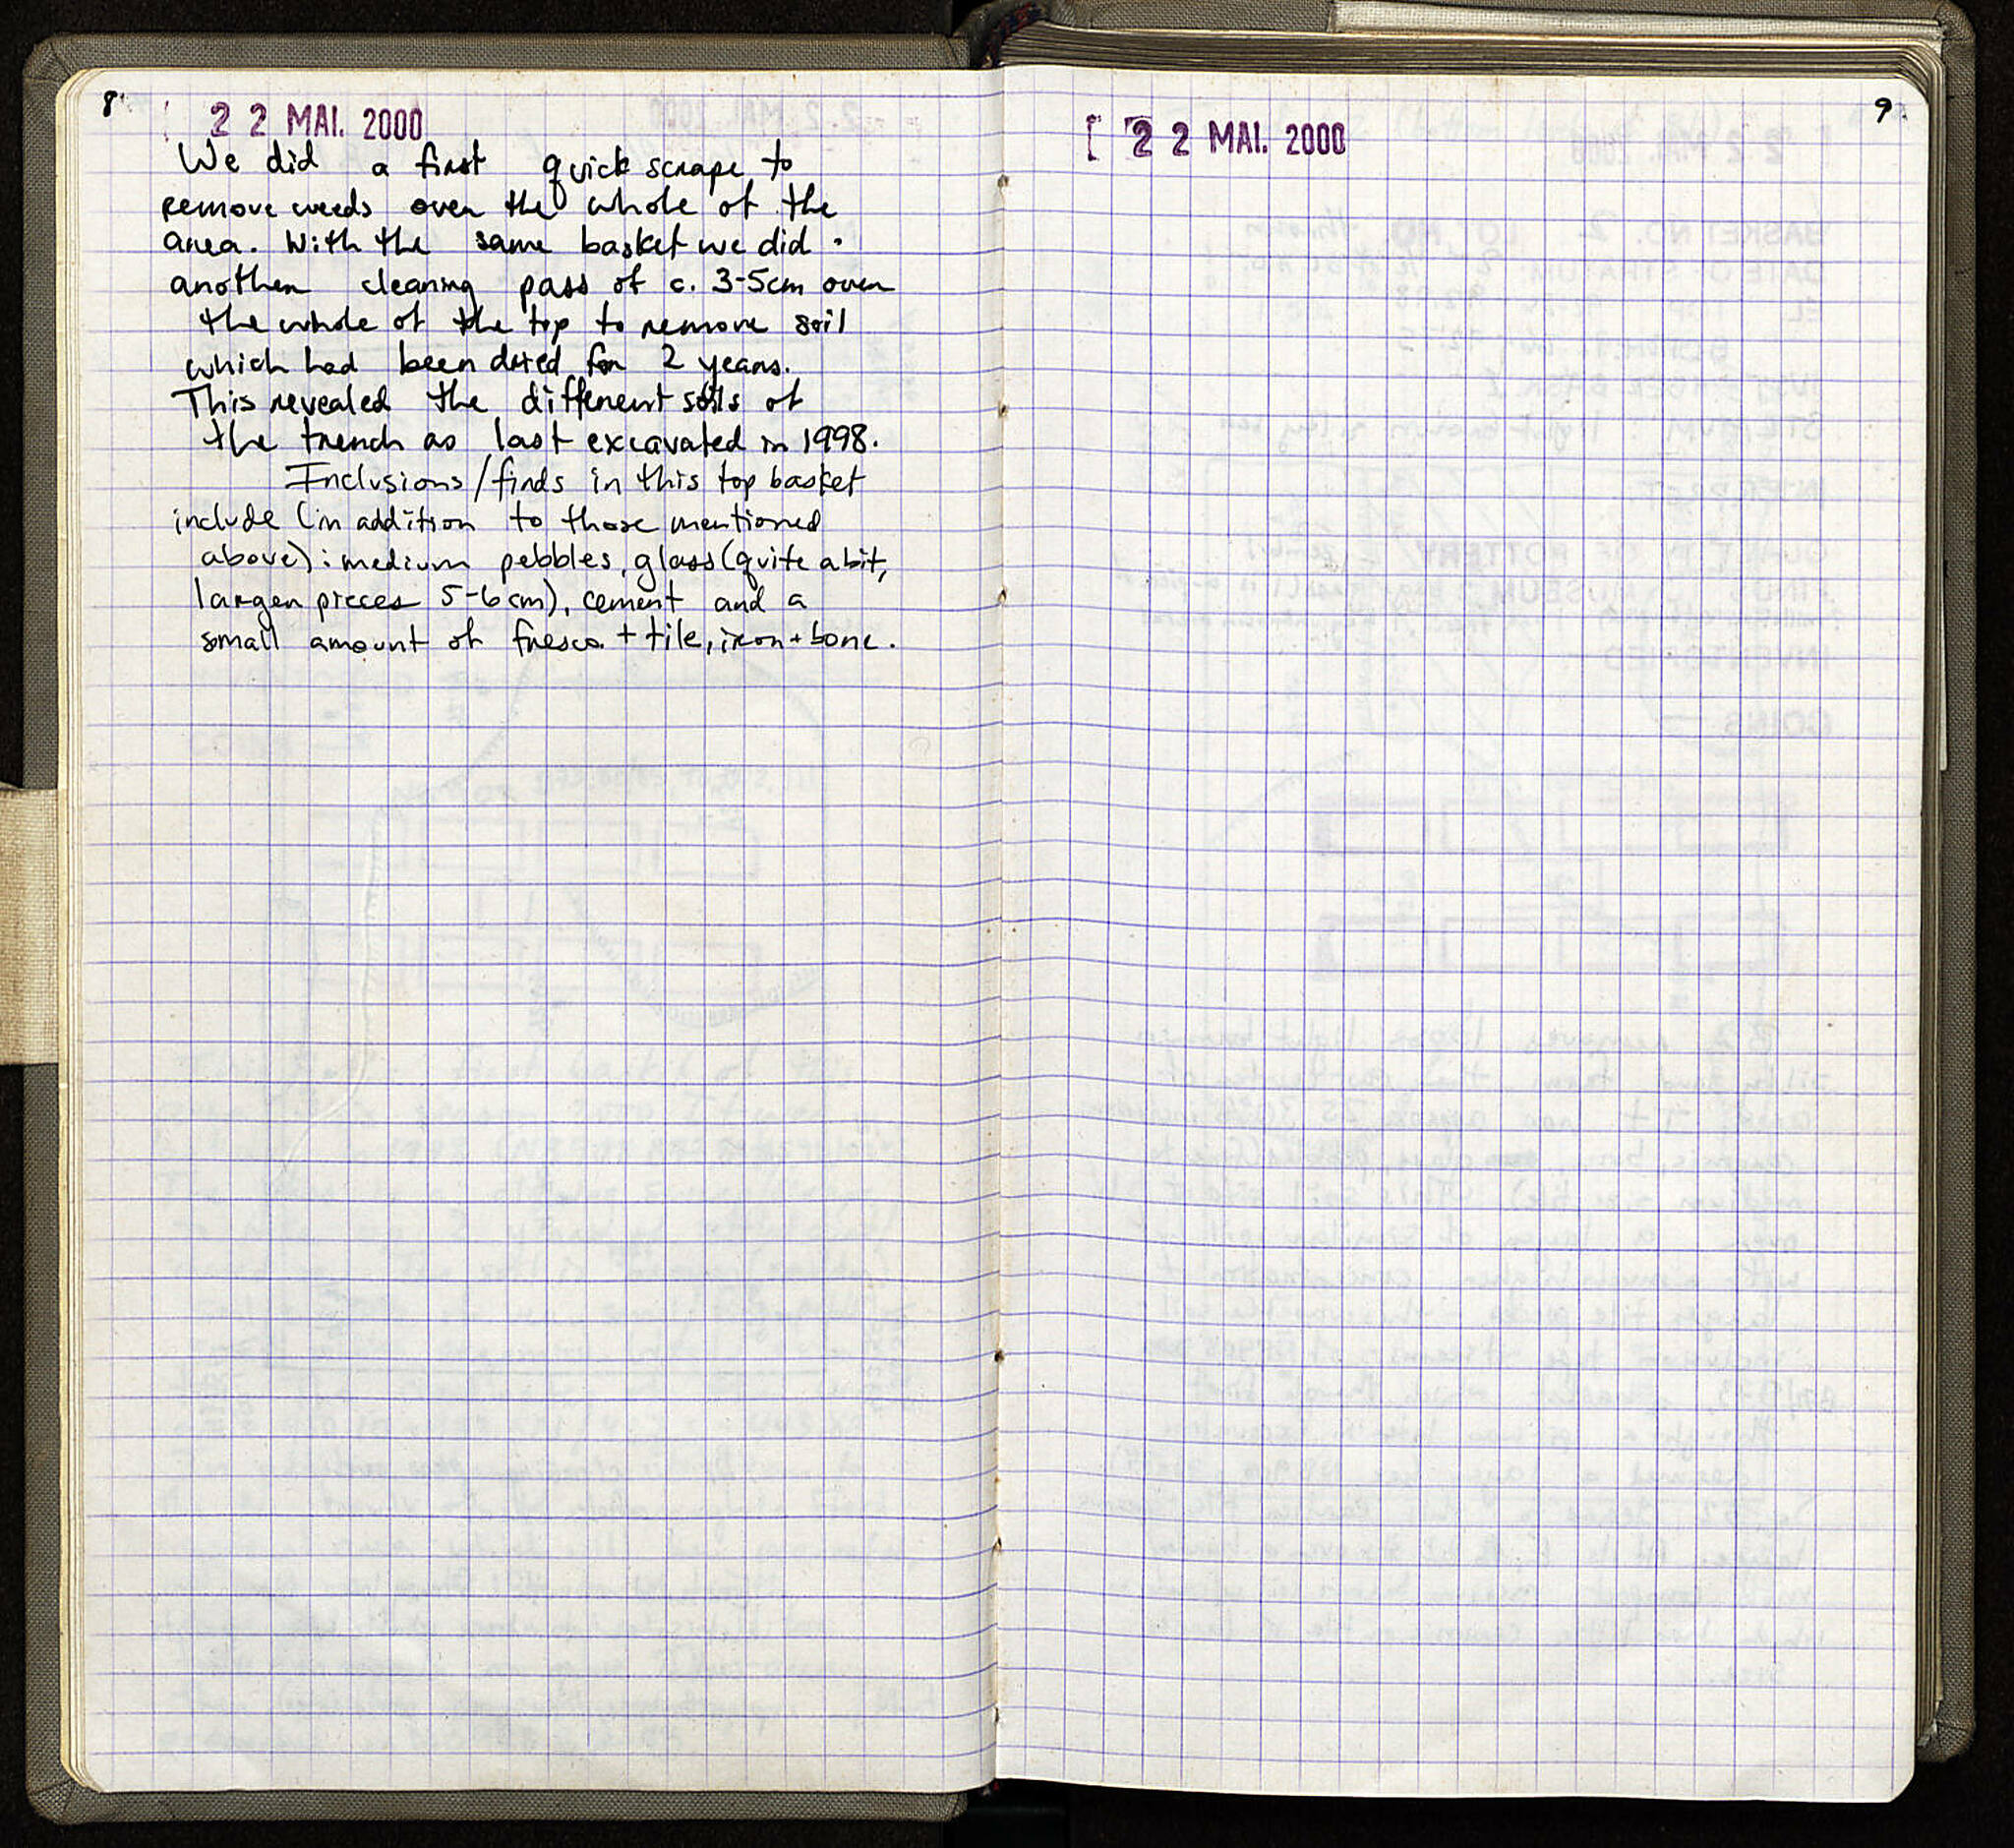 8
22 MAI. 2000
We did a first quick scrape to
remove weeds over the whole of the
area. With the same basket we did
another cleaning pass of c. 3-5cm over
the whole of the top to remove soil
which had been dried for 2 years.
This revealed the different soils of
the trench as last excavated in 1998.
Inclusions/finds in this top basket
include (in addition to those mentioned
above): medium pebbles, glass (quite a bit,
larger pieces 5-6cm), cement and a
small amount of fresco + tile, iron + bone.
9
22 MAI. 2000